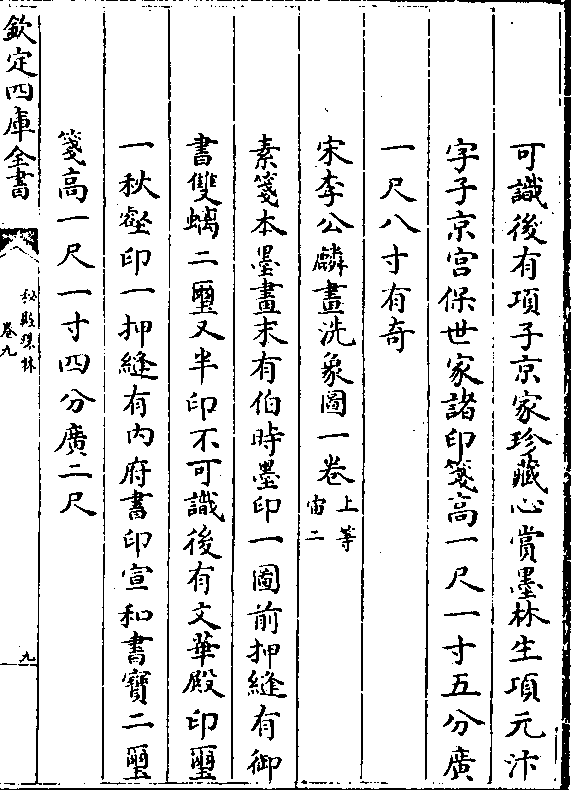 可識後有項子京家珍藏心賞墨林生項元汴
字子京宫保世家諸印箋高一尺一寸五分廣
一尺八寸有奇
宋李公麟畫洗象圖一卷上等宙二
素箋本墨畫末有伯時墨印一圖前押縫有御
書雙螭二璽又半印不可識後有文華殿印璽
一秋壑印一押縫有内府書印宣和書寶二璽
箋高一尺一寸四分廣二尺
欽定四庫全書
秘殿珠林
卷九
九